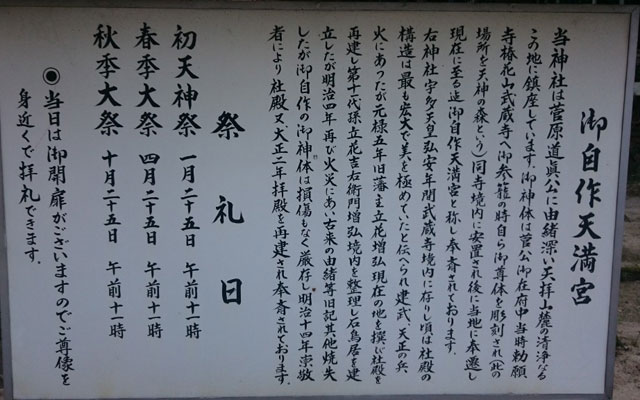 御自作天満宮
当神社は菅原道真公に由緒深い天拝山麓の清浄なる
この地に鎮座しています。御神体は菅公御在府中当時勅願
寺椿花山武蔵寺へ御参籠の時自ら御尊体を彫刻され(此の
場所を天神の森という)同寺境内に安置され後に当地に奉遷し
現在に至る迄御自作天満宮と称し奉斎されております。
右神社宇多天皇弘安年間武蔵寺境内に存りし頃は社殿の
構造は最も宏大で美を極めていたと伝へられ建武、天正の兵
火にあったが元禄五年旧藩主立花増弘現在の地を撰び社殿を
再建し第十代孫立花吉右衛門増弘境内を整理し石鳥居を建
立したが明治四年再び火災にあい古来の由緒等旧記其他焼失
したが御自作の御神体は損傷もなく厳存し明治十四年崇敬
者により社殿、又、大正二年拝殿を再建され奉斎されております。
祭礼日
初天神祭 一月二十五日 午前十一時
春季大祭 四月二十五日 午前十一時
秋季大祭 十月二十五日 午前十一時
◉当日は御開扉がございますのでご尊像を
身近くで拝礼できます。